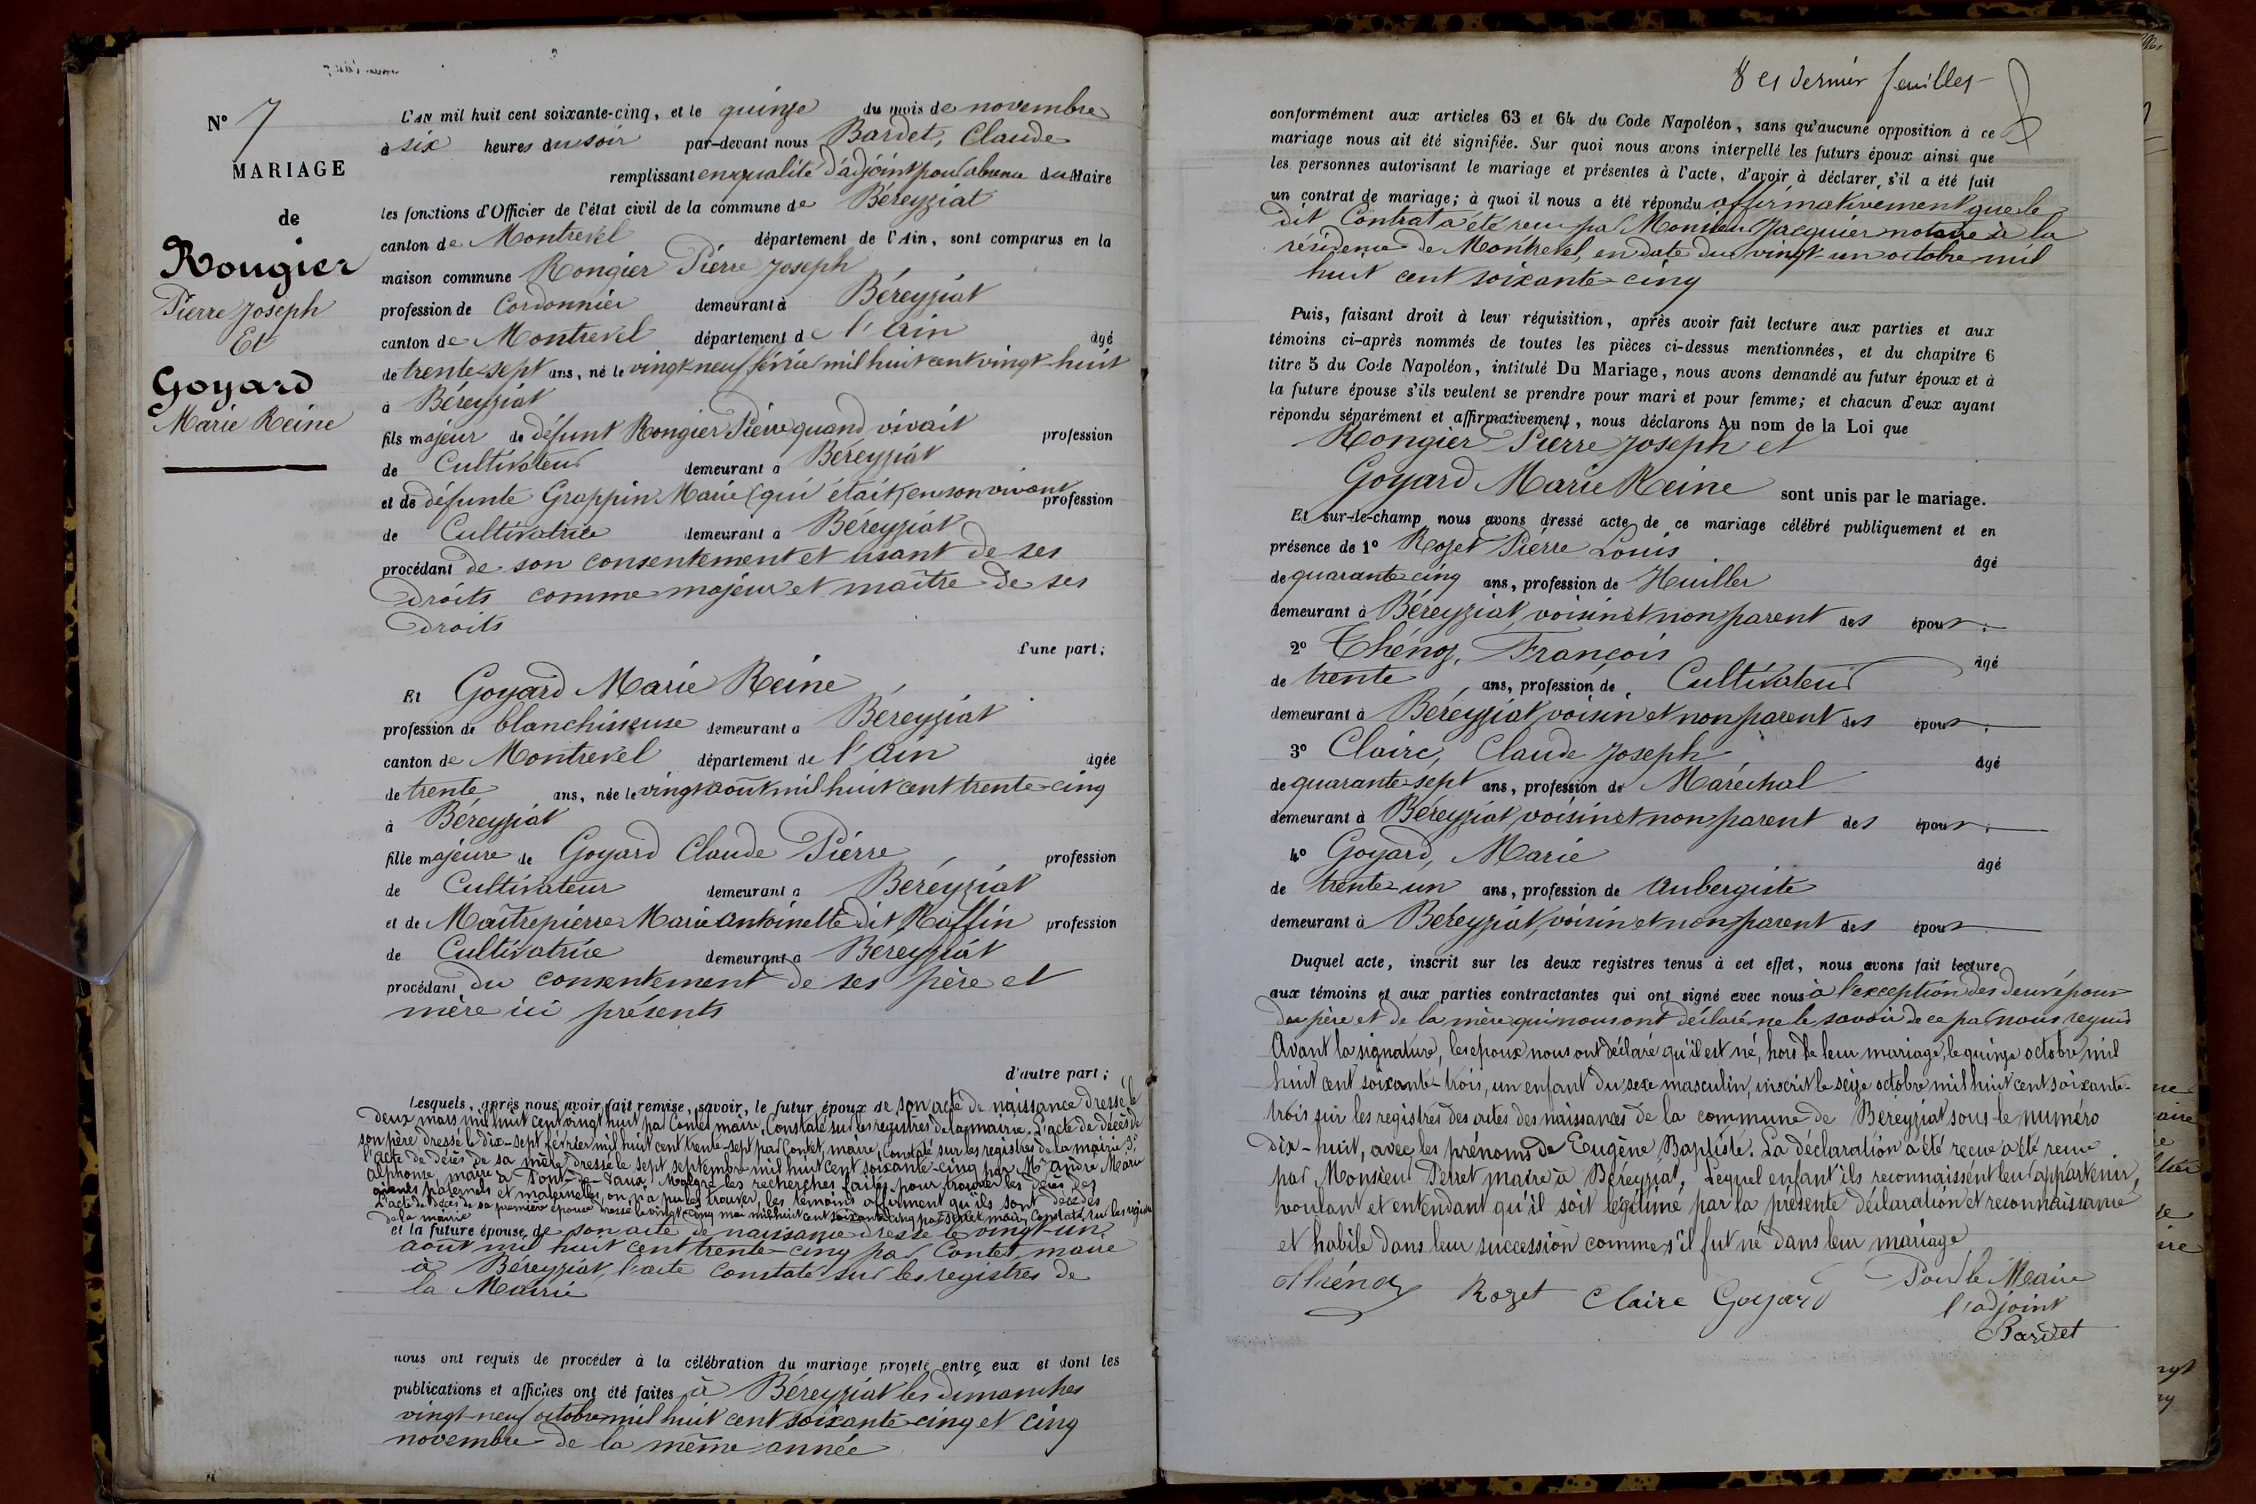 N° 7
MARIAGE
de
Rougier
Pierre Joseph
Et
Goyard
Marie Reine
L'AN mil huit cent soixante-cinq, et le quinze du mois de novembre
à six heures du soir par-devant nous Bardet, Claude
remplissant en qualité d'adjoint pour l'absence du Maire
les fonctions d'Officier de l'état civil de la commune de Béreyziat
canton de Montrevel département de l'Ain, sont comparus en la
maison commune Rougier Pierre Joseph
profession de Cordonnier demeurant à Béreyziat
canton de Montrevel département de l'Ain âgé
de trente-sept ans, né le vingt-neuf février mil huit cent vingt-huit
à Béreyziat
fils majeur de défunt Rougier Pierre quand vivait profession
de Cultivateur demeurant à Béreyziat
et de défunte Grappin Marie (qui était en son vivant profession
de Cultivatrice demeurant à Béreyziat
procédant de son consentement et usant de ses
droits comme majeur et maître de ses
droits
d'une part;
Et Goyard Marie Reine
profession de blanchisseuse demeurant à Béreyziat
canton de Montrevel département de l'Ain âgée
de trente ans, née le vingt août mil huit cent trente-cinq
à Béreyziat
fille majeure de Goyard Claude Pierre profession
de Cultivateur demeurant à Béreyziat
et de Maîtrepierre Marie Antoinette dit Raffin profession
de Cultivatrice demeurant à Béreyziat
procédant du consentement de ses père et
mère ici présents
d'autre part;
Lesquels, après nous avoir fait remise, savoir, le futur époux de son acte de naissance dressé le
deux mars mil huit cent vingt huit par Contet maire, Constaté sur les registres de la mairie. L'acte de décès de
son père dressé le dix-sept février mil huit cent trente-sept par Contet, maire, Constaté sur les registres de la mairie
l'acte de décès de sa mère dressé le sept septembre mil huit cent soixante-cinq par Mr André Marie
Alphonse, maire à Pont-de-Vaux, Malgré les recherches faites pour trouver les décès des
grands paternels et maternelles, on n'a pu les trouver, les témoins affirment qu'ils sont décédés
L'acte de décès de sa première épouse dressé le vingt cinq mai mil huit cent soixante cinq par Perret maire, Constaté sur les registres
de la mairie
et la future épouse, de son acte de naissance dressé le vingt-un
août mil huit cent trente-cinq par Contet, maire
à Béreyziat, l'acte Constaté sur les registres de
la Mairie
nous ont requis de procéder à la célébration du mariage projeté entre eux et dont les
publications et affiches ont été faites à Béreyziat les dimanches
vingt-neuf octobre mil huit cent soixante-cinq et cinq
novembre de la même année
8 es dernier feuillet
conformément aux articles 63 et 64 du Code Napoléon, sans qu'aucune opposition à ce
mariage nous ait été signifiée. Sur quoi nous avons interpellé les futurs époux ainsi que
les personnes autorisant le mariage et présentes à l'acte, d'avoir à déclarer, s'il a été fait
un contrat de mariage; à quoi il nous a été répondu affirmativement que le
dit Contrat a été reçu par Monsieur Jacquier notaire à la
résidence de Montrevel, en date du vingt-un octobre mil
huit cent soixante-cinq
Puis, faisant droit à leur réquisition, après avoir fait lecture aux parties et aux
témoins ci-après nommés de toutes les pièces ci-dessus mentionnées, et du chapitre 6
titre 5 du Code Napoléon, intitulé Du Mariage, nous avons demandé au futur époux et à
la future épouse s'ils veulent se prendre pour mari et pour femme; et chacun d'eux ayant
répondu séparément et affirmativement, nous déclarons Au nom de la Loi que
Rougier Pierre Joseph et
Goyard Marie Reine sont unis par le mariage.
Et sur-le-champ nous avons dressé acte de ce mariage célébré publiquement et en
présence de 1° Rozet Pierre Louis âgé
de quarante cinq ans, profession de Huiller
demeurant à Béreyziat, voisin et non parent des époux;
2° Thénoz, François âgé
de trente ans, profession de Cultivateur
demeurant à Béreyziat, voisin et non parent des époux;
3° Claire, Claude Joseph âgé
de quarante-sept ans, profession de Maréchal
demeurant à Béreyziat, voisin et non parent des époux;
4° Goyard, Marie âgé
de trente-un ans, profession de Aubergiste
demeurant à Béreyziat, voisin et non parent des époux
Duquel acte, inscrit sur les deux registres tenus à cet effet, nous avons fait lecture
aux témoins et aux parties contractantes qui ont signé avec nous à l'exception des deux époux
du père et de la mère qui nous ont déclaré ne le savoir de ce par nous requis
Avant la signature, les époux nous ont déclaré qu'il est né, hors de leur mariage, le quinze octobre mil
huit cent soixante-trois, un enfant du sexe masculin, inscrit le seize octobre mil huit cent soixante-
trois sur les registres des actes des naissances de la commune de Béreyziat sous le numéro
dix-huit, avec les prénoms de Eugène Baptiste. La déclaration a été reçue a été reçue
par Monsieur Perret maire à Béreyziat, Lequel enfant ils reconnaissent leur appartenir,
voulant et entendant qu'il soit légitimé par la présente déclaration et reconnaissance
et habile dans leur succession comme s'il fut né dans leur mariage
Thénoz Rozet Claire Goyard Pour le Maire
l'adjoint
Bardet